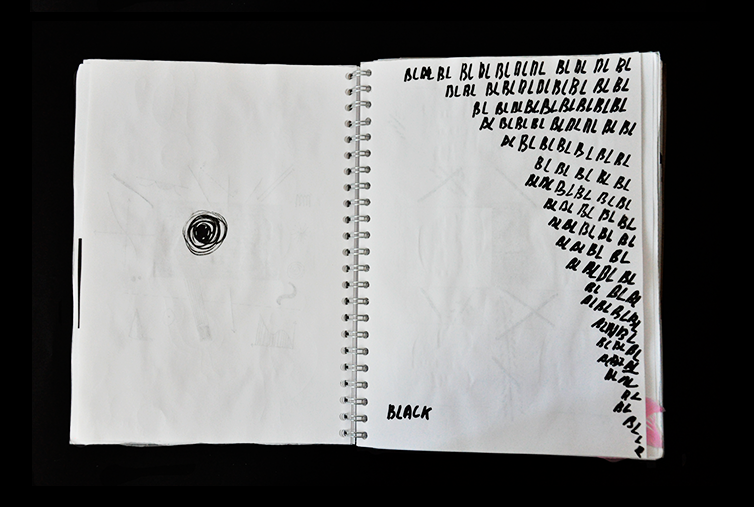 BLBL BL BL BL BL BL BL BL BL BL BL
BL BL BL BL BL BL BL BL BL BL
BL BL BL BL BL BL BL BL BL
BL BL BL BL BL BL BL BL BL
BL BL BL BL BL BL BL
BL BL BL BL BL
BL BL BL BL BL BL
BL BL BL BL BL
BL BL BL BL BL
BL BL BL BL
BL BL BL BL
BL BL BL
BL BL BL BL
BL BL BL
BL BL BL
BL BL BL
BL BL
BL
BL
BL
L
BLACK